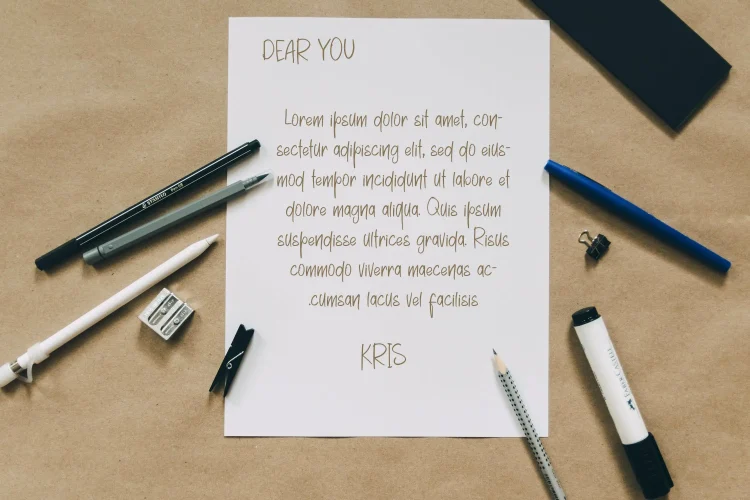 DEAR YOU
Lorem ipsum dolor sit amet, con-
sectetur adipiscing elit, sed do eius-
mod tempor incididunt ut labore et
dolore magna aliqua. Quis ipsum
suspendisse ultrices gravida. Risus
commodo viverra maecenas ac-
.cumsan lacus vel facilisis
KRIS
STABILO
FABER-CASTELL